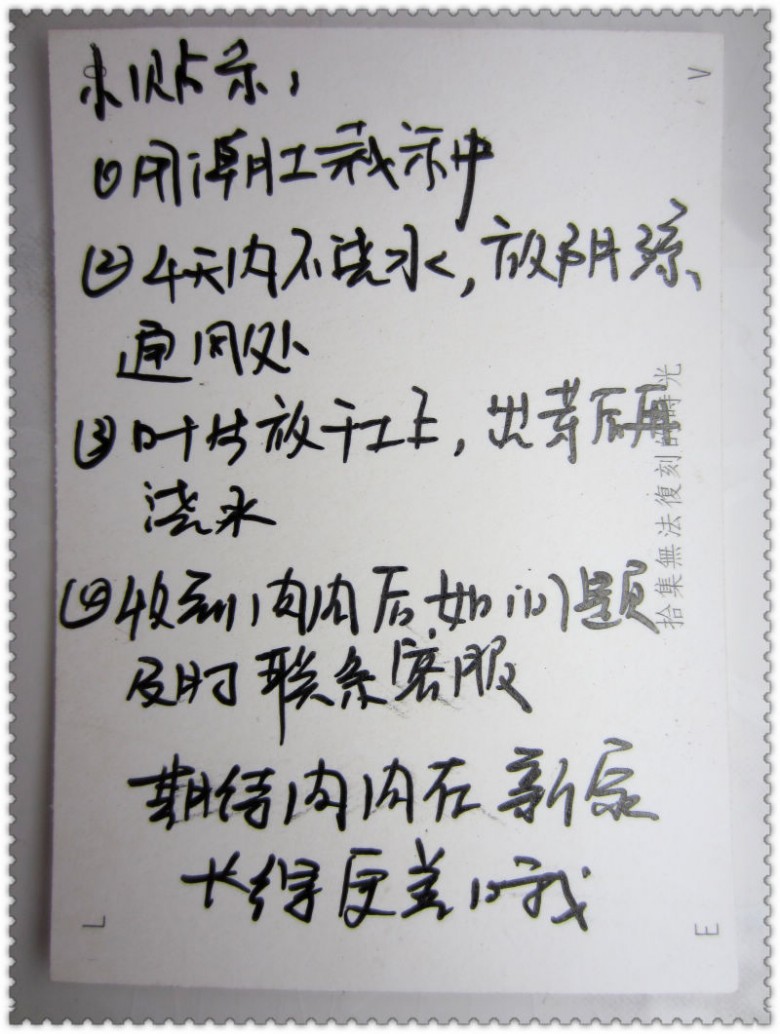 小贴示:
①用潮土栽种
②4天内不浇水,放阴凉
通风处
③叶片放干土上,出芽后再
浇水
④收到肉肉后如问题
及时联系客服
期待肉肉在新家
长得更美哦
拾集無法復刻的時光
V
L
E